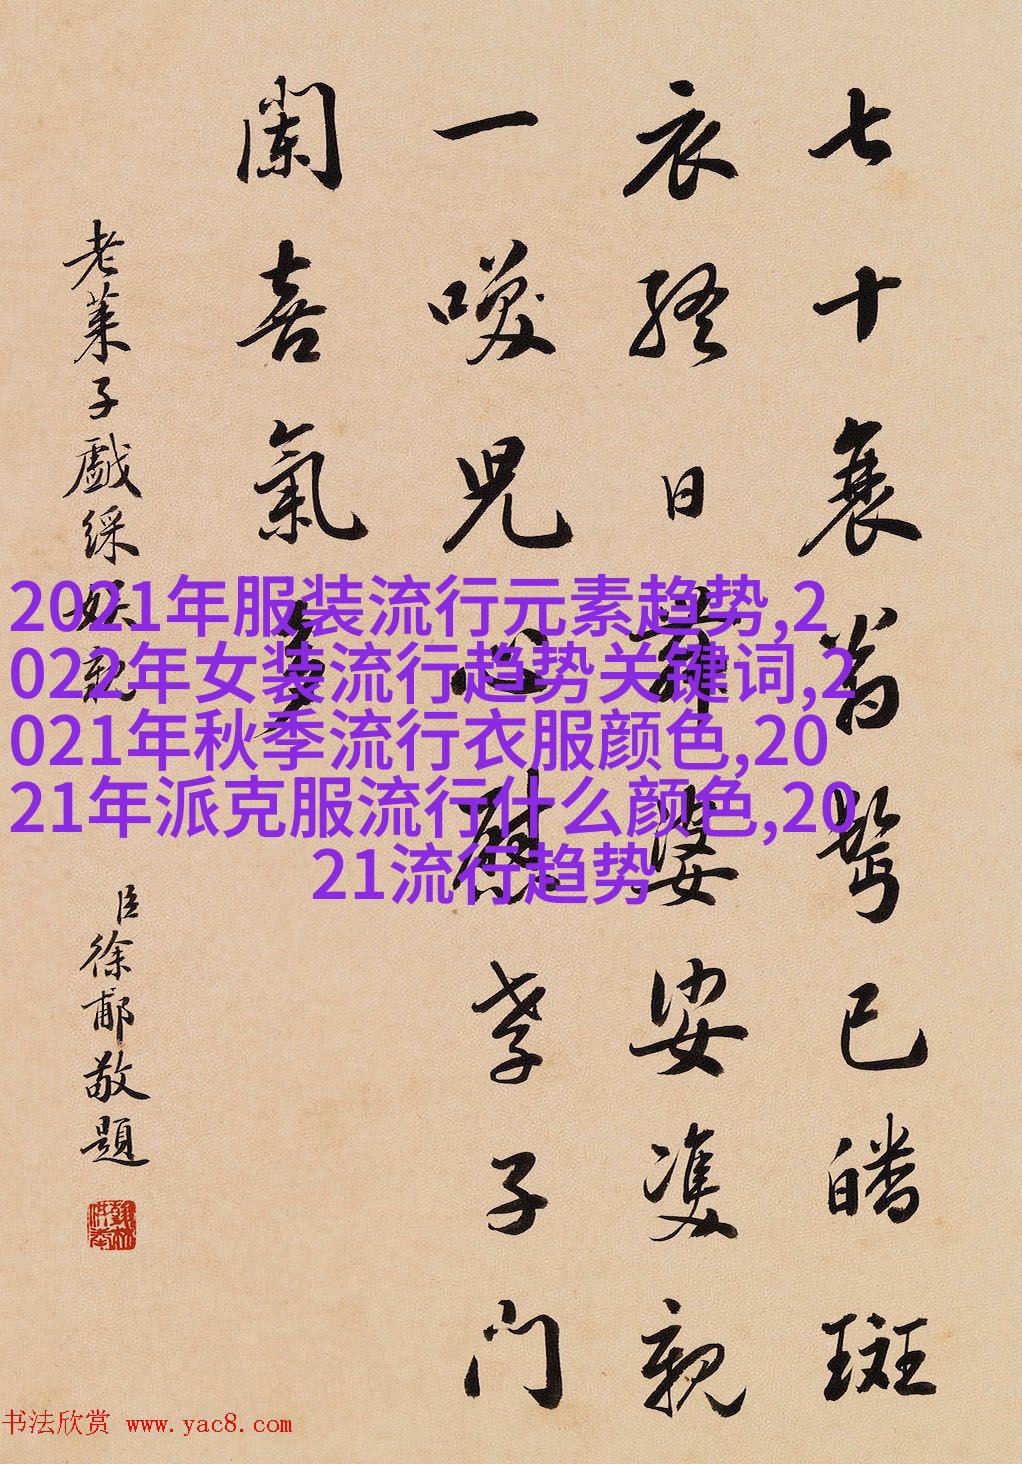 七十衰翁髩已皤斑
衣终日舞婆娑双亲
一噗児心慰孝子门
阑喜氣多
老莱子戯綵娱親
臣徐郙敬題
2021年服装流行元素趋势,2
022年女装流行趋势关键词,2
021年秋季流行衣服颜色,20
21年派克服流行什么颜色,20
21流行趋势
书法欣赏 www.yac8.com